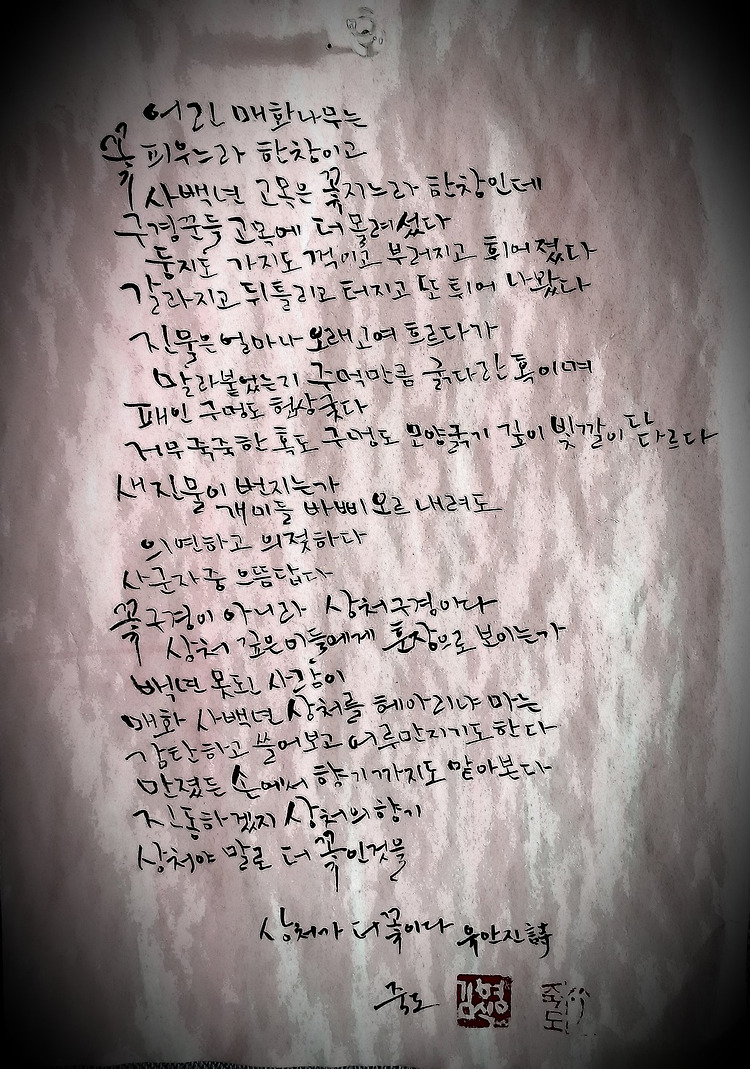 어린 매화나무는
꽃 피우느라 한창이고
사백년 고목은 꽃지느라 한창인데
구경꾼들 고목에 더 몰려섰다
둥치도 가지도 꺽이고 부러지고 휘어졌다
갈라지고 뒤틀리고 터지고 또 튀어 나왔다
진물은 얼마나 오래 고여 흐르다가
말라붙었는지 주먹만큼 굵다란 혹이며
패인 구멍도 험상궂다
거무죽죽한 혹도 구멍도 모양굵기 깊이 빛깔이 다르다
새 진물이 번지는가
개미들 바삐 오르 내려도
의연하고 의젓하다
사군자 중 으뜸답다
꽃구경이 아니라 상처구경이다
상처 깊은 이들에게 훈장으로 보이는가
백년 못된 사람이
매화 사백년 상처를 헤아리랴 마는
감탄하고 쓸어보고 어루만지기도 한다
만졌든 손에서 향기까지도 맡아본다
진동하겠지 상처의 향기
상처야 말로 더 꽃인것을
상처가 더 꽃이다 유안진 詩
죽도
죽도